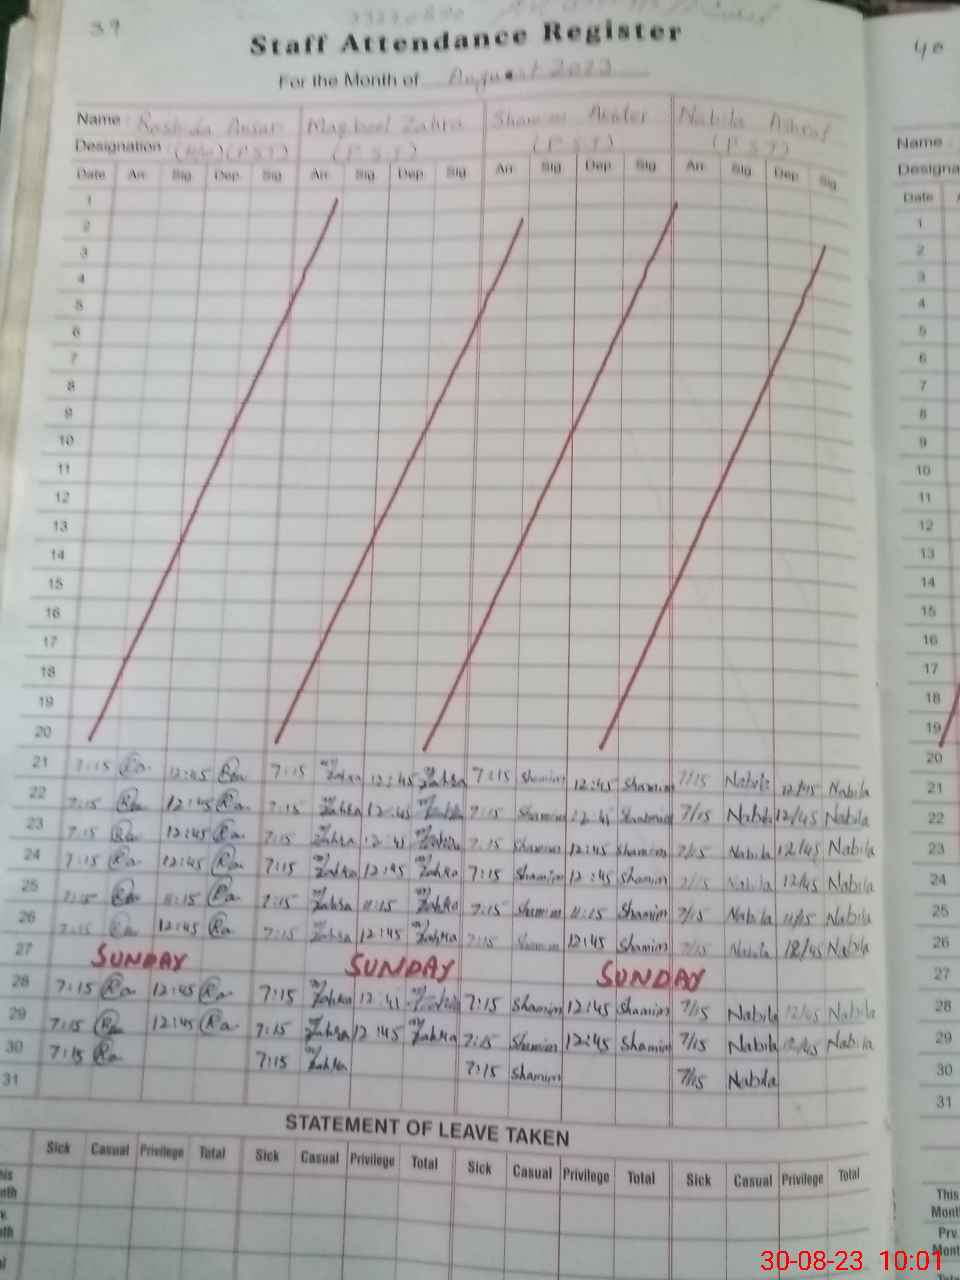 39
Staff Attendance Register
For the Month of August 2023
Name : Rashida Ansari Maqbool Zahra Shamim Akhter Nabila Ashraf
Designation (P.S.T) (P.S.T) (P.S.T) (P.S.T)
Date Arr. Sig. Dep. Sig. Arr. Sig. Dep. Sig. Arr. Sig. Dep. Sig. Arr. Sig. Dep. Sig.
1
2
3
4
5
6
7
8
9
10
11
12
13
14
15
16
17
18
19
20
21 7:15 Ra 12:45 Ra 7:15 Zahra 12:45 Zahra 7:15 Shamim 12:45 Shamim 7/15 Nabila 12/45 Nabila
22 7:15 Ra 12:45 Ra 7:15 Zahra 12:45 Zahra 7:15 Shamim 12:45 Shamim 7/15 Nabila 12/45 Nabila
23 7:15 Ra 12:45 Ra 7:15 Zahra 12:45 Zahra 7:15 Shamim 12:45 Shamim 7/15 Nabila 12/45 Nabila
24 7:15 Ra 12:45 Ra 7:15 Zahra 12:45 Zahra 7:15 Shamim 12:45 Shamim 7/15 Nabila 12/45 Nabila
25 7:15 Ra 11:15 Ra 7:15 Zahra 11:15 Zahra 7:15 Shamim 11:15 Shamim 7/15 Nabila 11/15 Nabila
26 7:15 Ra 12:45 Ra 7:15 Zahra 12:45 Zahra 7:15 Shamim 12:45 Shamim 7/15 Nabila 12/45 Nabila
27 SUNDAY SUNDAY SUNDAY
28 7:15 Ra 12:45 Ra 7:15 Zahra 12:45 Zahra 7:15 Shamim 12:45 Shamim 7/15 Nabila 12/45 Nabila
29 7:15 Ra 12:45 Ra 7:15 Zahra 12:45 Zahra 7:15 Shamim 12:45 Shamim 7/15 Nabila 12/45 Nabila
30 7:15 Ra 7:15 Zahra 7:15 Shamim 7/15 Nabila
31
STATEMENT OF LEAVE TAKEN
Sick Casual Privilege Total Sick Casual Privilege Total Sick Casual Privilege Total Sick Casual Privilege Total
40
Name
Date
1
2
3
4
5
6
7
8
9
10
11
12
13
14
15
16
17
18
19
20
21
22
23
24
25
26
27
28
29
30
31
This
Month
Prv.
Month
30-08-23 10:01